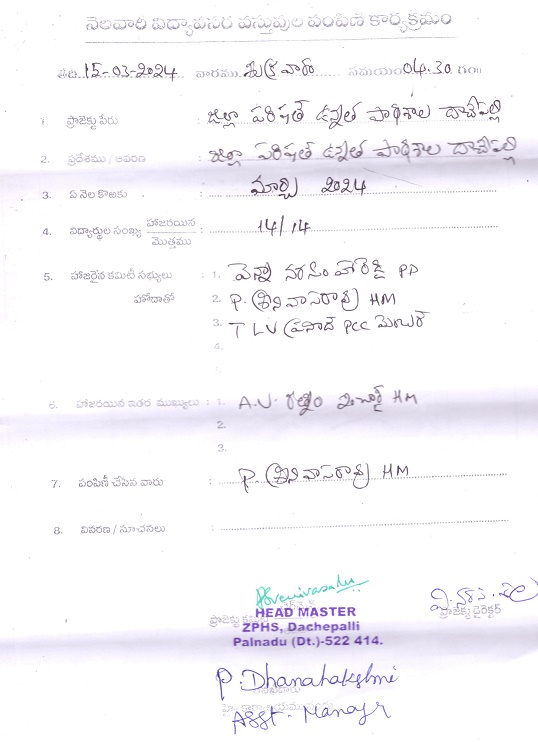 నెలవారి విద్యావసర వస్తువుల పంపిణి కార్యక్రమం
తేది. 15-03-2024 వారము శుక్రవారం సమయం 04.30 గం॥
1. ప్రాజెక్టు పేరు : జిల్లా పరిషత్ ఉన్నత పాఠశాల దాచేపల్లి
2. ప్రదేశము / ఆవరణ : జిల్లా పరిషత్ ఉన్నత పాఠశాల దాచేపల్లి
3. ఏ నెల కొఱకు : మార్చి 2024
4. విద్యార్థుల సంఖ్య హాజరయిన / మొత్తము : 14/14
5. హాజరైన కమిటీ సభ్యులు : 1. వెన్నా నరసింహారెడ్డి PD
హోదాతో 2. P. శ్రీనివాసరావు HM
3. T L V ప్రసాద్ PCC మెంబర్
4.
6. హాజరయిన ఇతర ముఖ్యులు : 1. A.V. రత్నం HM
2.
3.
7. పంపిణీ చేసిన వారు : P. శ్రీనివాసరావు HM
8. వివరణ / సూచనలు :
PSrenivasulu
ప్రాజెక్టు డైరెక్టర్
HEAD MASTER
ZPHS, Dachepalli
Palnadu (Dt.)-522 414.
P. Dhanalakshmi
Asst. Manager